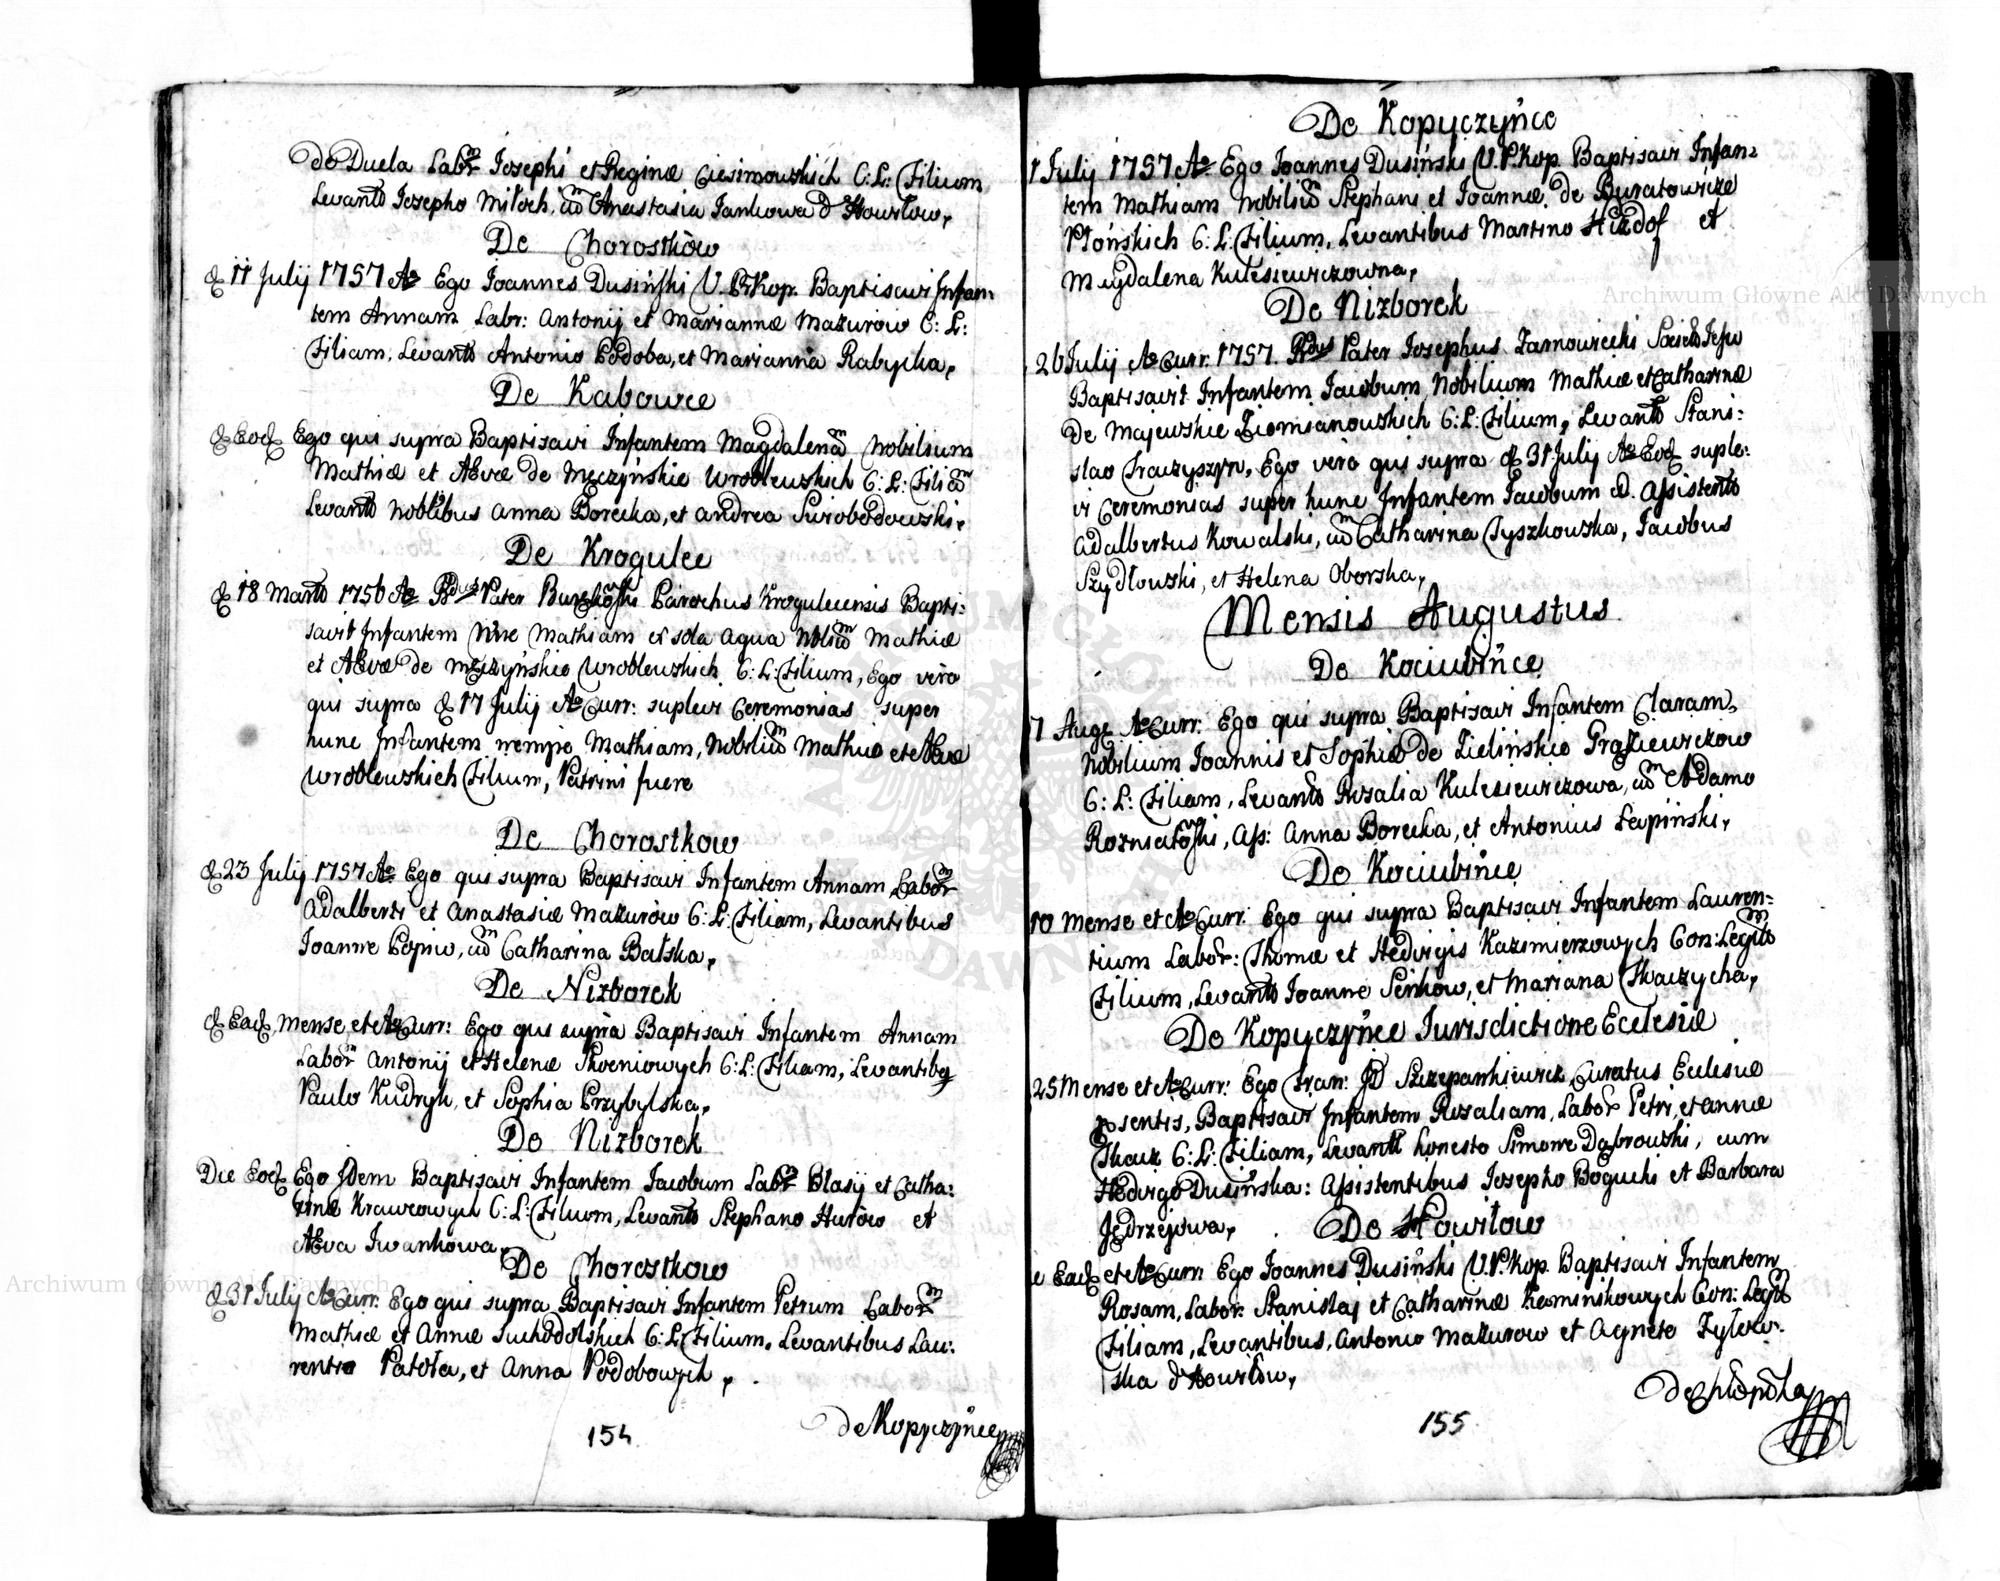 de Duela Labr Josephi et Reginæ Ciesimowskich C: L: Filium
Levante Josepho Mitoch, cum Anastasia Jankowa d Howilow,
De Chorostków
d 11 July 1757 Ao Ego Joannes Dusiński V. P. Kop. Baptisavi Infan
tem Annam Labr: Antonij et Mariannæ Mazurów C: L:
Filiam, Levante Antonio Podoba, et Marianna Rabycka,
De Kabowce
d Eod Ego qui supra Baptisavi Infantem Magdalenam Nobilium
Mathiæ et Aevæ de Męczyńskie Wroblewskich C: L: Filiam
Levante Noblibus Anna Borecka, et Andrea Swobodowski,
De Krogulec
d 18 Marti 1756 Ao Rdus Pater Parochus Krogulecensis Bapti:
savit Infantem Nne Mathiam ex sola aqua Noblium Mathiæ
et Aevæ de Męczyńskie Wroblewskich C: L: Filium, Ego vero
qui supra d 17 July Ao Curr: suplevi Ceremonias super
hunc Infantem nempe Mathiam, Nobilium Mathiæ et Aevæ
Wroblewskich Filium, Patrini fuere
De Chorostkow
d 23 July 1757 Ao Ego qui supra Baptisavi Infantem Annam Labor
Adalberti et Anastasiæ Mazurów C: L: Filiam, Levantibus
Joanne Popiw, cum Catharina Balska,
De Nizborek
d Ead, Mense et Ao Curr: Ego qui supra Baptisavi Infantem Annam
Labor Antonij et Helenæ C: L: Filiam, Levantibq
Paulo Kudryk, et Sophia Przybylska,
De Nizborek
Die Eod Ego Idem Baptisavi Infantem Jacobum Labr Blasij et Catha:
rinæ Krawcowych C: L: Filium, Levante Stephano Hurów et
Aeva Iwankowa,
De Chorostkow
d 31 July Ao Curr: Ego qui supra Baptisavi Infantem Petrum Labor
Mathiæ et Annæ Suchodolskich C: L: Filium, Levantibus Lau:
rentio Patoła, et Anna Podobowych,
154
de Kopyczyńce
De Kopyczyńce
1 July 1757 Ao Ego Joannes Dusiński V. P. Kop. Baptisavi Infan:
tem Mathiam Nobilium Stephani et Joannæ de Buratowicze
Płońskich C: L: Filium, Levantibus Martino et
Magdalena Kulesiewiczowna,
De Nizborek
26 July Ao Curr: 1757. Rdus Pater Josephus Jamowiecki Societ Jesu
Baptisavit Infantem Jacobum Nobilium Mathiæ et Catharinæ
de Majewskie Ziemianowskich C: L: Filium, Levante Stani:
slao Frauzyszyn, Ego vero qui supra d 31 July Ao Eod suple:
vi Ceremonias super hunc Infantem Jacobum d. Assistente
Adalbertus Kowalski, cum Catharina Tyszkowska, Jacobus
Szydłowski, et Helena Oborska,
Mensis Augustus
De Kociubińce
7 Augt Ao Curr: Ego qui supra Baptisavi Infantem Claram,
Nobilium Joannis et Sophiæ de Zielińskie Grażiewiczow
C: L: Filiam, Levante Rosalia Kulesiewiczowa, cum Adamo
Rozniatoski, Ass: Anna Borecka, et Antonius Łapiński,
De Kociubińce
10 Mense et Ao Curr: Ego qui supra Baptisavi Infantem Lauren:
tium Labor: Thomæ et Hedvigis Kazimierzowych Con: Legit
Filium, Levante Joanne Senkow, et Mariana Tkaczycha,
De Kopyczyńce Iurisdictione Ecclesiæ
25 Mense et Ao Curr: Ego Fran: Szczepankiewicz Curatus Ecclesiæ
psentis, Baptisavi Infantem Rosaliam, Labor Petri, et Annæ
Tkacz C: L: Filiam, Levante honesto Simone Dąbrowski, cum
Hedvige Dusińska: Assistentibus Josepho Bogucki et Barbara
Jędrzejowa,
De Howilow
e Ead et Ao Curr: Ego Joannes Dusiński V. P. Kop. Baptisavi Infantem
Rosam, Labor: Stanislaj et Catharinæ Kaminikowych Con: Legit
Filiam, Levantibus, Antonio Mazurow et Agnete
ska d Howilow,
155
Archiwum Główne Akt Dawnych
Archiwum Główne Akt Dawnych